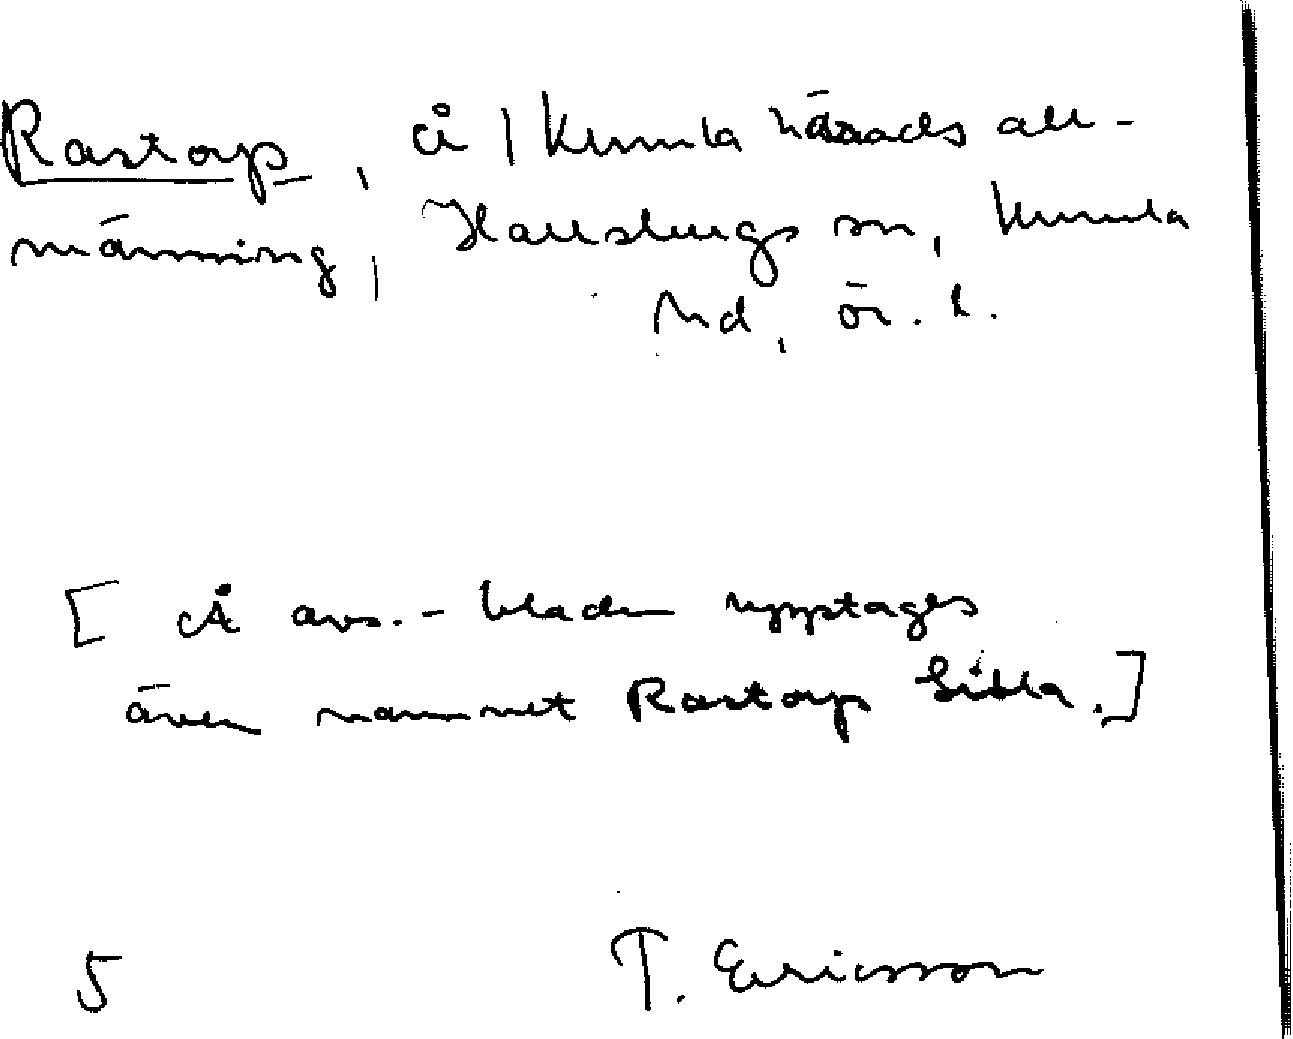 Rastorp, å | Kumla härads all-
männing, Hallsbergs sn, Kumla
hd, ör. l.
[ Å avs.-bladen upptages
även namnet Rastorp Lilla.]
5 T. Ericsson